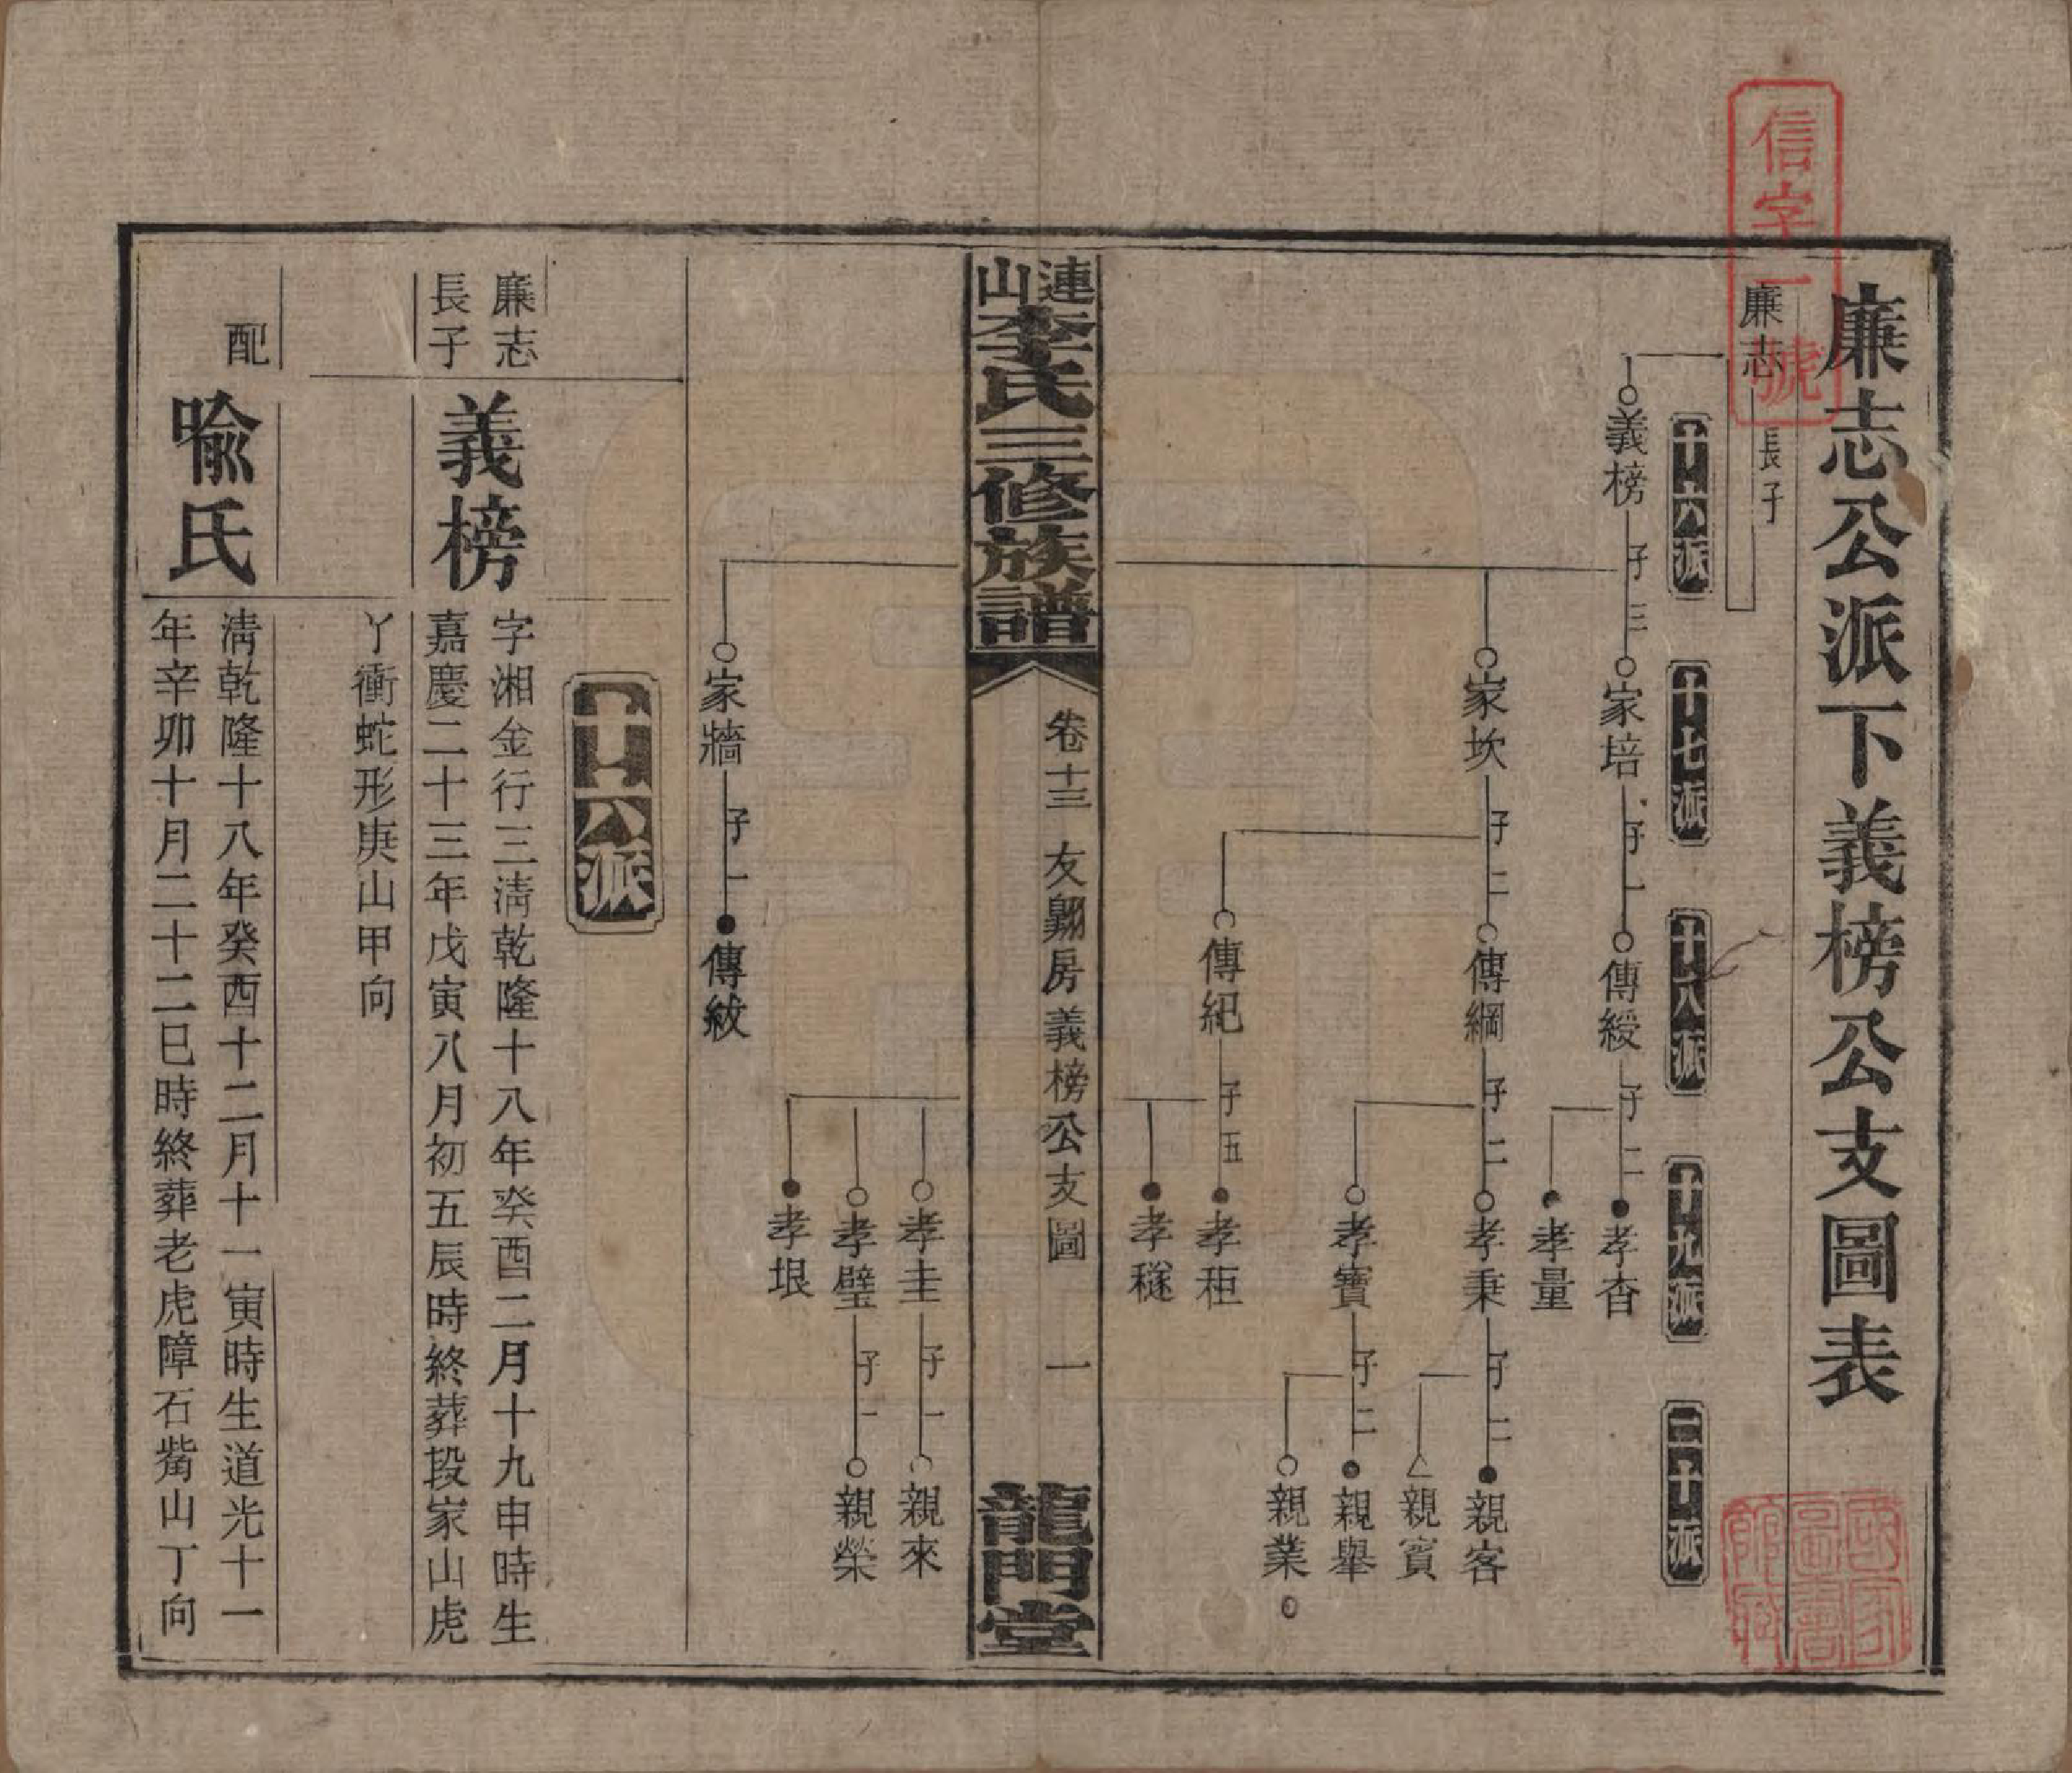 信字一號
廉志公派下義榜公支圖表
廉志長子
十六派
十七派
十八派
十九派
二十派
義榜 子三
家培 子一
傳綬 子二
孝杳
孝量
家坎 子二
傳綱 子二
孝秉 子二
親客
親賓
孝寶 子二
親舉
親業
傳紀 子五
孝秬
孝穟
連山李氏三修族譜
卷十三
友翱房義榜公支圖
一
龍門堂
孝圭 子一
親來
孝璧 子一
親榮
孝垠
家牆 子一
傳紱
十六派
廉志長子
義榜
字湘金行三淸乾隆十八年癸酉二月十九申時生
嘉慶二十三年戊寅八月初五辰時終葬段家山虎
丫衝蛇形庚山甲向
配
喩氏
淸乾隆十八年癸酉十二月十一寅時生道光十一
年辛卯十月二十二巳時終葬老虎障石觜山丁向